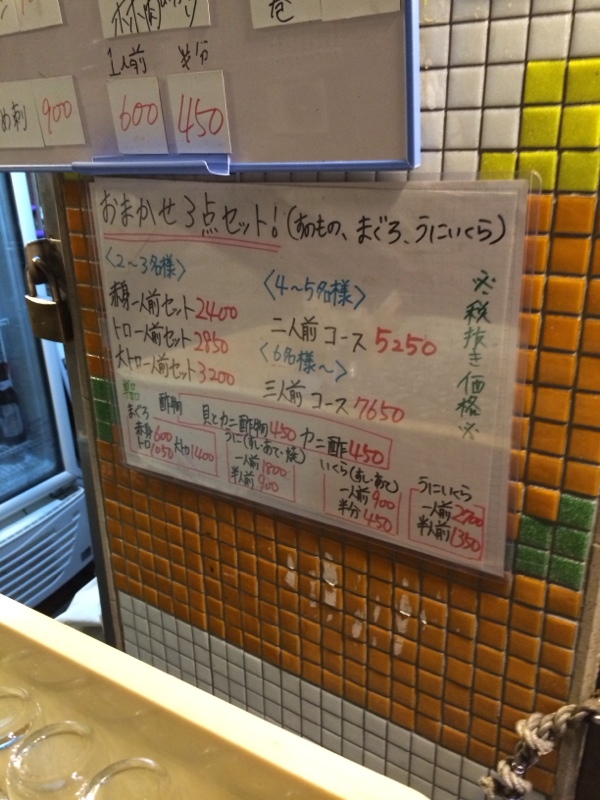 1人前 半分
め刺 900 600 450
おまかせ3点セット!(あのもの、まぐろ、うにいくら)
〈2〜3名様〉
赤身一人前セット2400
トロ一人前セット2950
大トロ一人前セット3200
〈4〜5名様〉
二人前コース5250
〈6名様〜〉
三人前コース7650
※税抜き価格※
単品
まぐろ
赤身600
トロ1050 大トロ1400
酢物 貝とカニ酢物450 カニ酢450
うに(さし・あて・焼)
一人前1800
半人前900
いくら(おし・あて)
一人前900
半分450
うにいくら
一人前2700
半人前1350